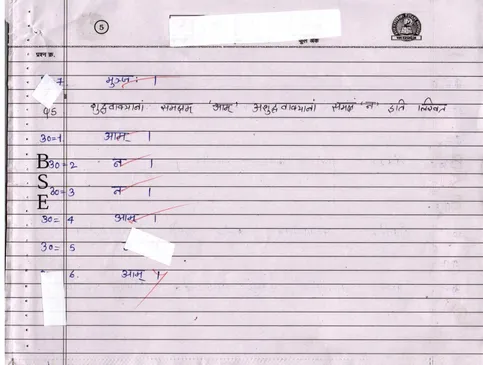 5
प्रश्न क्र.
7. मुञ्जः ।
Q5 शुद्धवाक्यानां समक्षम् 'आम्' अशुद्धवाक्यानां समक्षं 'न' इति लिखत
उ०=1. आम् ।
उ०=2 न ।
उ०=3 न ।
उ०= 4 आम् ।
उ०= 5
6. आम् ।
B
S
E